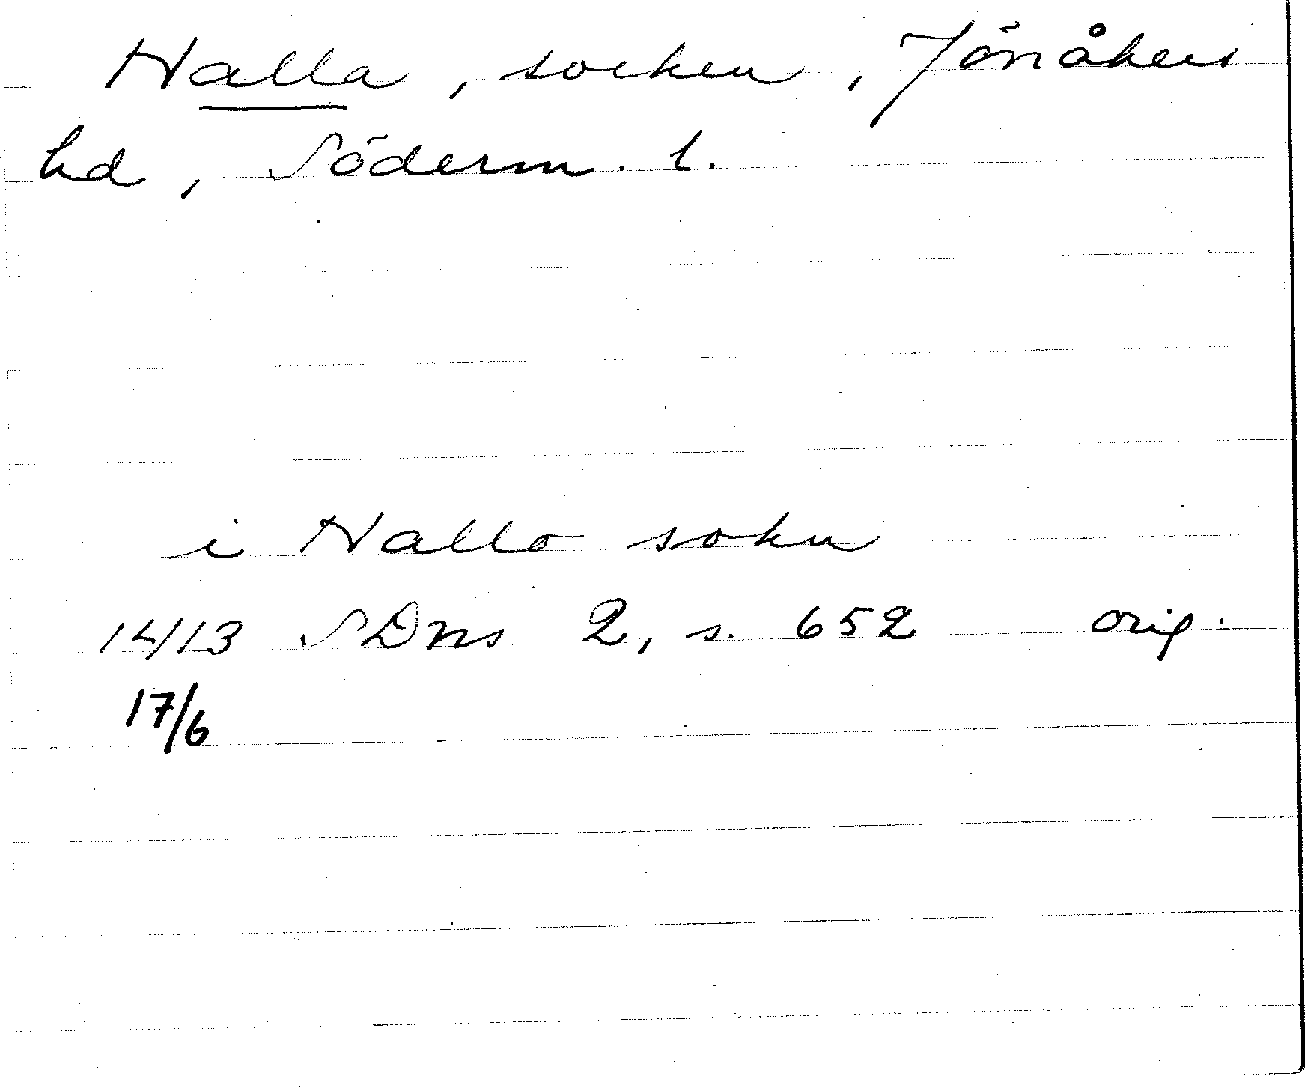 Halla, socken, Jönåkers
hd, Söderm. l.
i Hallo sokn
1413 SDns 2, s. 652 orig.
17/6